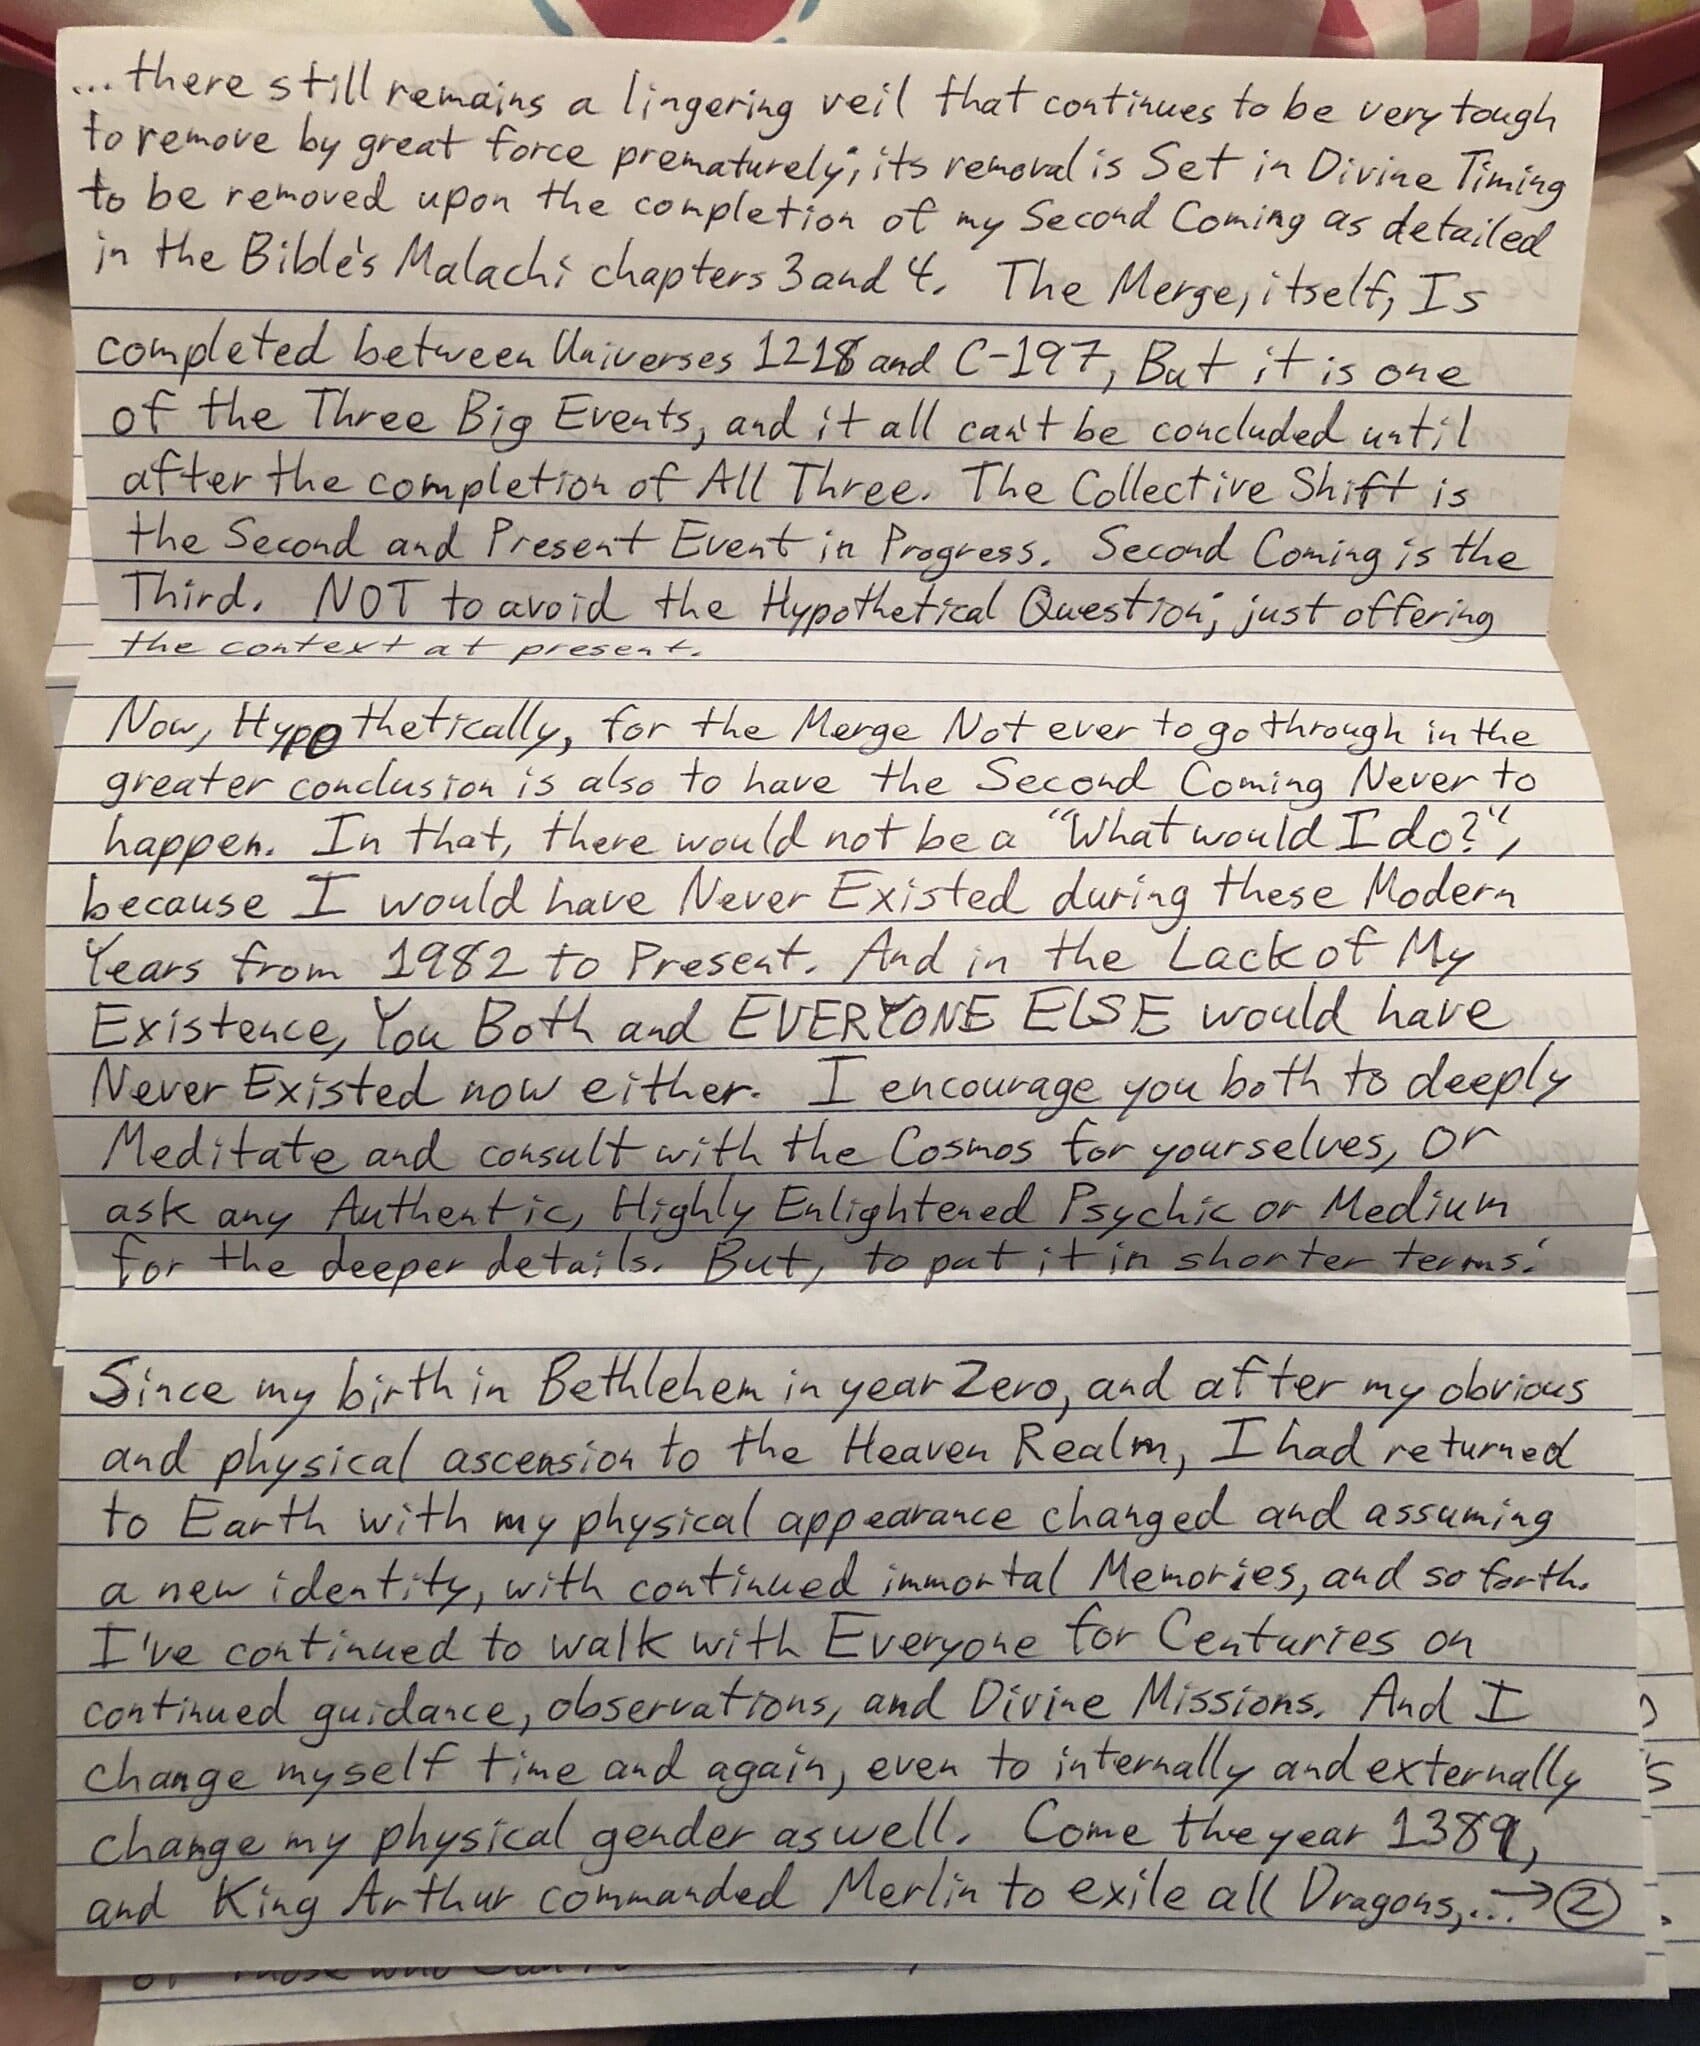 ... there still remains a lingering veil that continues to be very tough
to remove by great force prematurely; its removal is Set in Divine Timing
to be removed upon the completion of my Second Coming as detailed
in the Bible's Malachi chapters 3 and 4. The Merge, itself, Is
completed between Universes 1218 and C-197, But it is one
of the Three Big Events, and it all can't be concluded until
after the completion of All Three. The Collective Shift is
the Second and Present Event in Progress. Second Coming is the
Third. NOT to avoid the Hypothetical Question; just offering
the context at present.
Now, Hypothetically, for the Merge Not ever to go through in the
greater conclusion is also to have the Second Coming Never to
happen. In that, there would not be a "What would I do?",
because I would have Never Existed during these Modern
Years from 1982 to Present. And in the Lack of My
Existence, You Both and EVERYONE ELSE would have
Never Existed now either. I encourage you both to deeply
Meditate and consult with the Cosmos for yourselves, or
ask any Authentic, Highly Enlightened Psychic or Medium
for the deeper details. But, to put it in shorter terms:
Since my birth in Bethlehem in year Zero, and after my obvious
and physical ascension to the Heaven Realm, I had returned
to Earth with my physical appearance changed and assuming
a new identity, with continued immortal Memories, and so forth.
I've continued to walk with Everyone for Centuries on
continued guidance, observations, and Divine Missions. And I
change myself time and again, even to internally and externally
change my physical gender as well. Come the year 1389,
and King Arthur commanded Merlin to exile all Dragons,... → 2